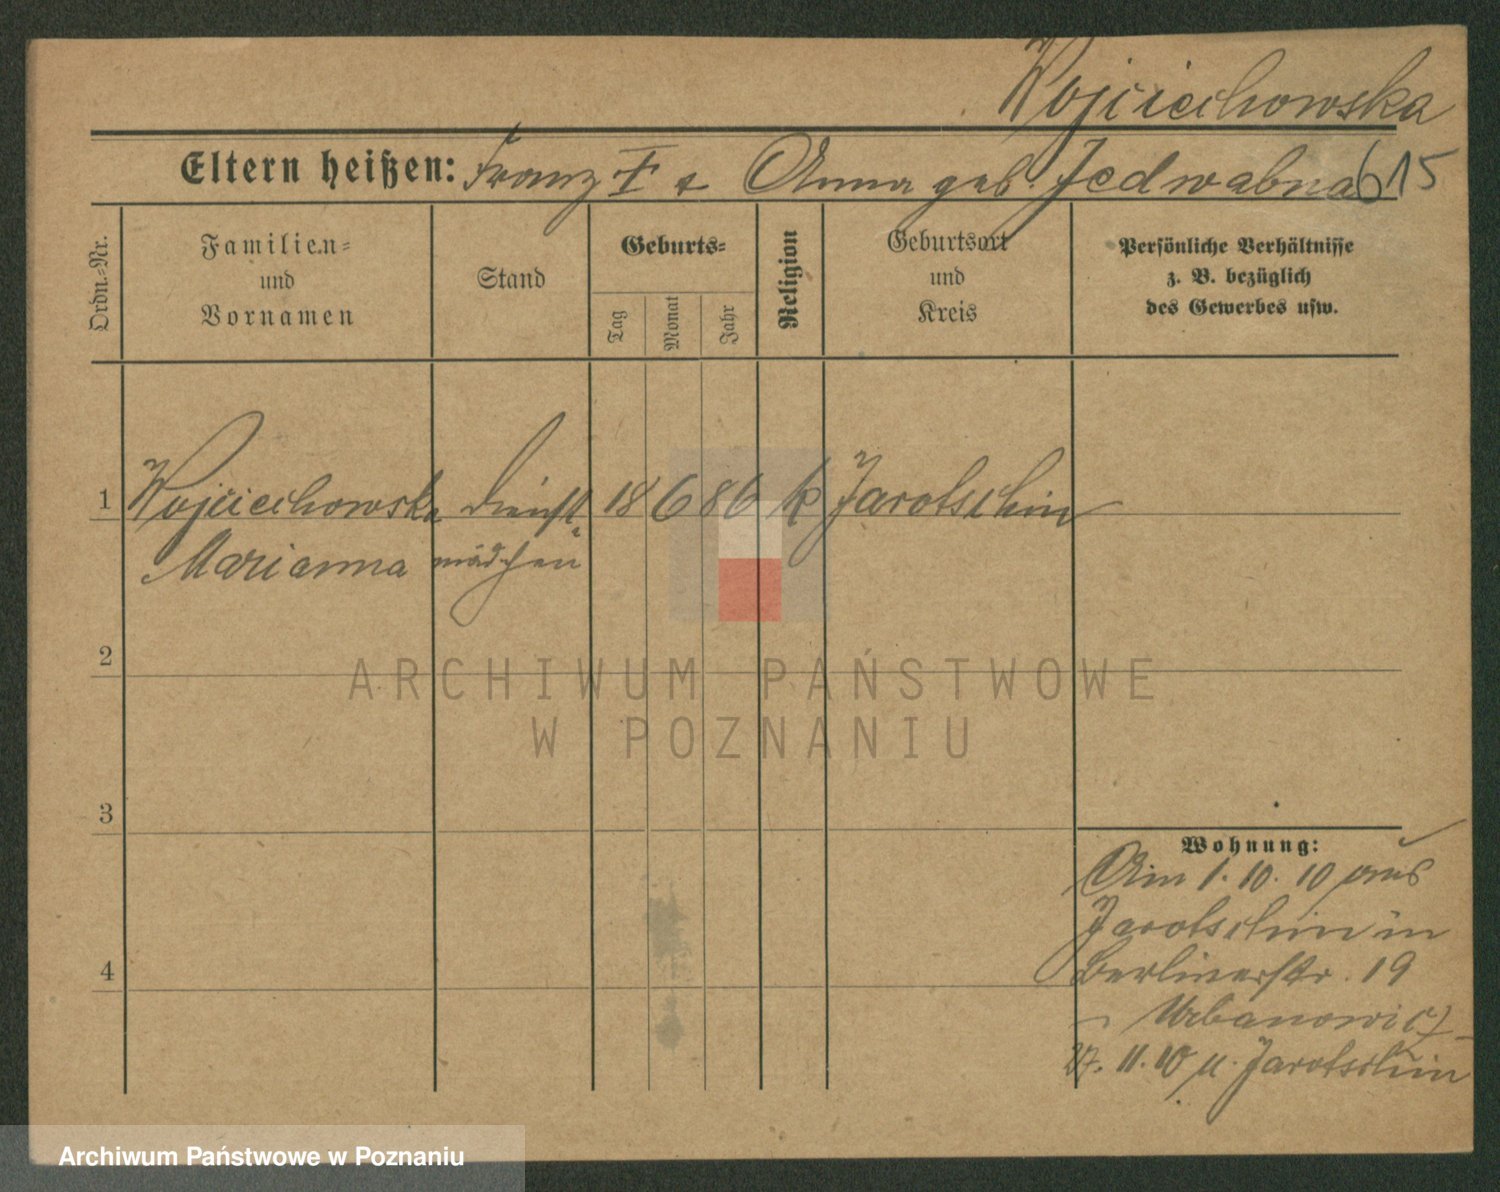 Wojciechowska
Eltern heißen: Franz † & Anna geb. Jedwabna 615
Ordn.-Nr.
Familien-
und
Vornamen
Stand
Geburts-
Tag
Monat
Jahr
Religion
Geburtsort
und
Kreis
Persönliche Verhältnisse
z. B. bezüglich
des Gewerbes usw.
1 Wojciechowska Dienst- 18 6 86 k Jarotschin
Marianna mädchen
2
ARCHIWUM PAŃSTWOWE
W POZNANIU
3
Wohnung:
Am 1. 10. 10 aus
Jarotschin in
4 Berlinerstr. 19
Urbanowicz
27. 11. 10 n. Jarotschin
Archiwum Państwowe w Poznaniu